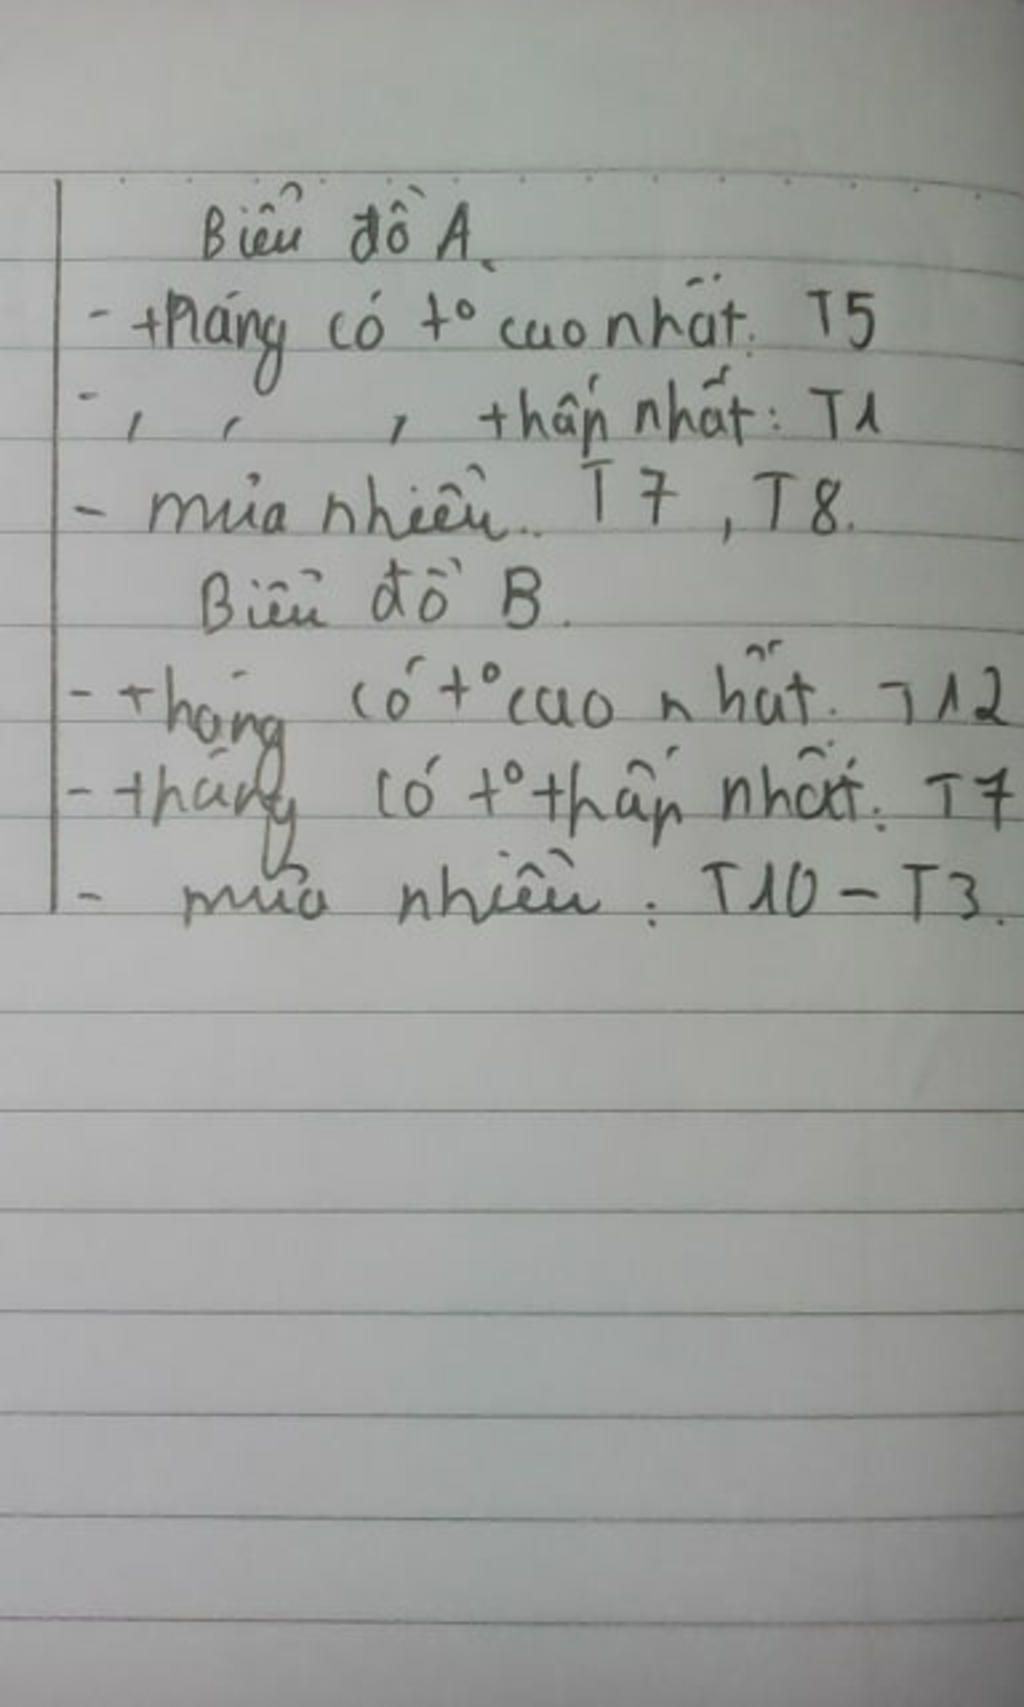 Biểu đồ A.
- tháng có t° cao nhất: T5
- , , , thấp nhất: T1
- mưa nhiều: T7, T8.
Biểu đồ B.
- tháng có t° cao nhất: T12
- tháng có t° thấp nhất: T7
- mưa nhiều: T10 - T3.